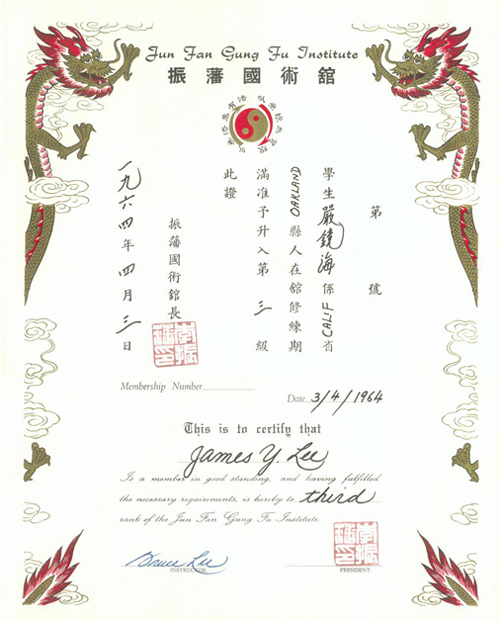 Jun Fan Gung Fu Institute
振藩國術館
以無法為有法 以無限為有限
第 號
學生嚴鏡海係CALIF省
OAKLAND縣人在館修練期
滿准予升入第三級
此證
振藩國術館長
李振藩印
一九六四年四月三日
Membership Number
Date 3/4/1964
This is to certify that
James Y. Lee
Is a member in good standing, and having fulfilled
the necessary requirements, is hereby to third
rank of the Jun Fan Gung Fu Institute.
李振藩印
Bruce Lee
INSTRUCTOR
PRESIDENT.